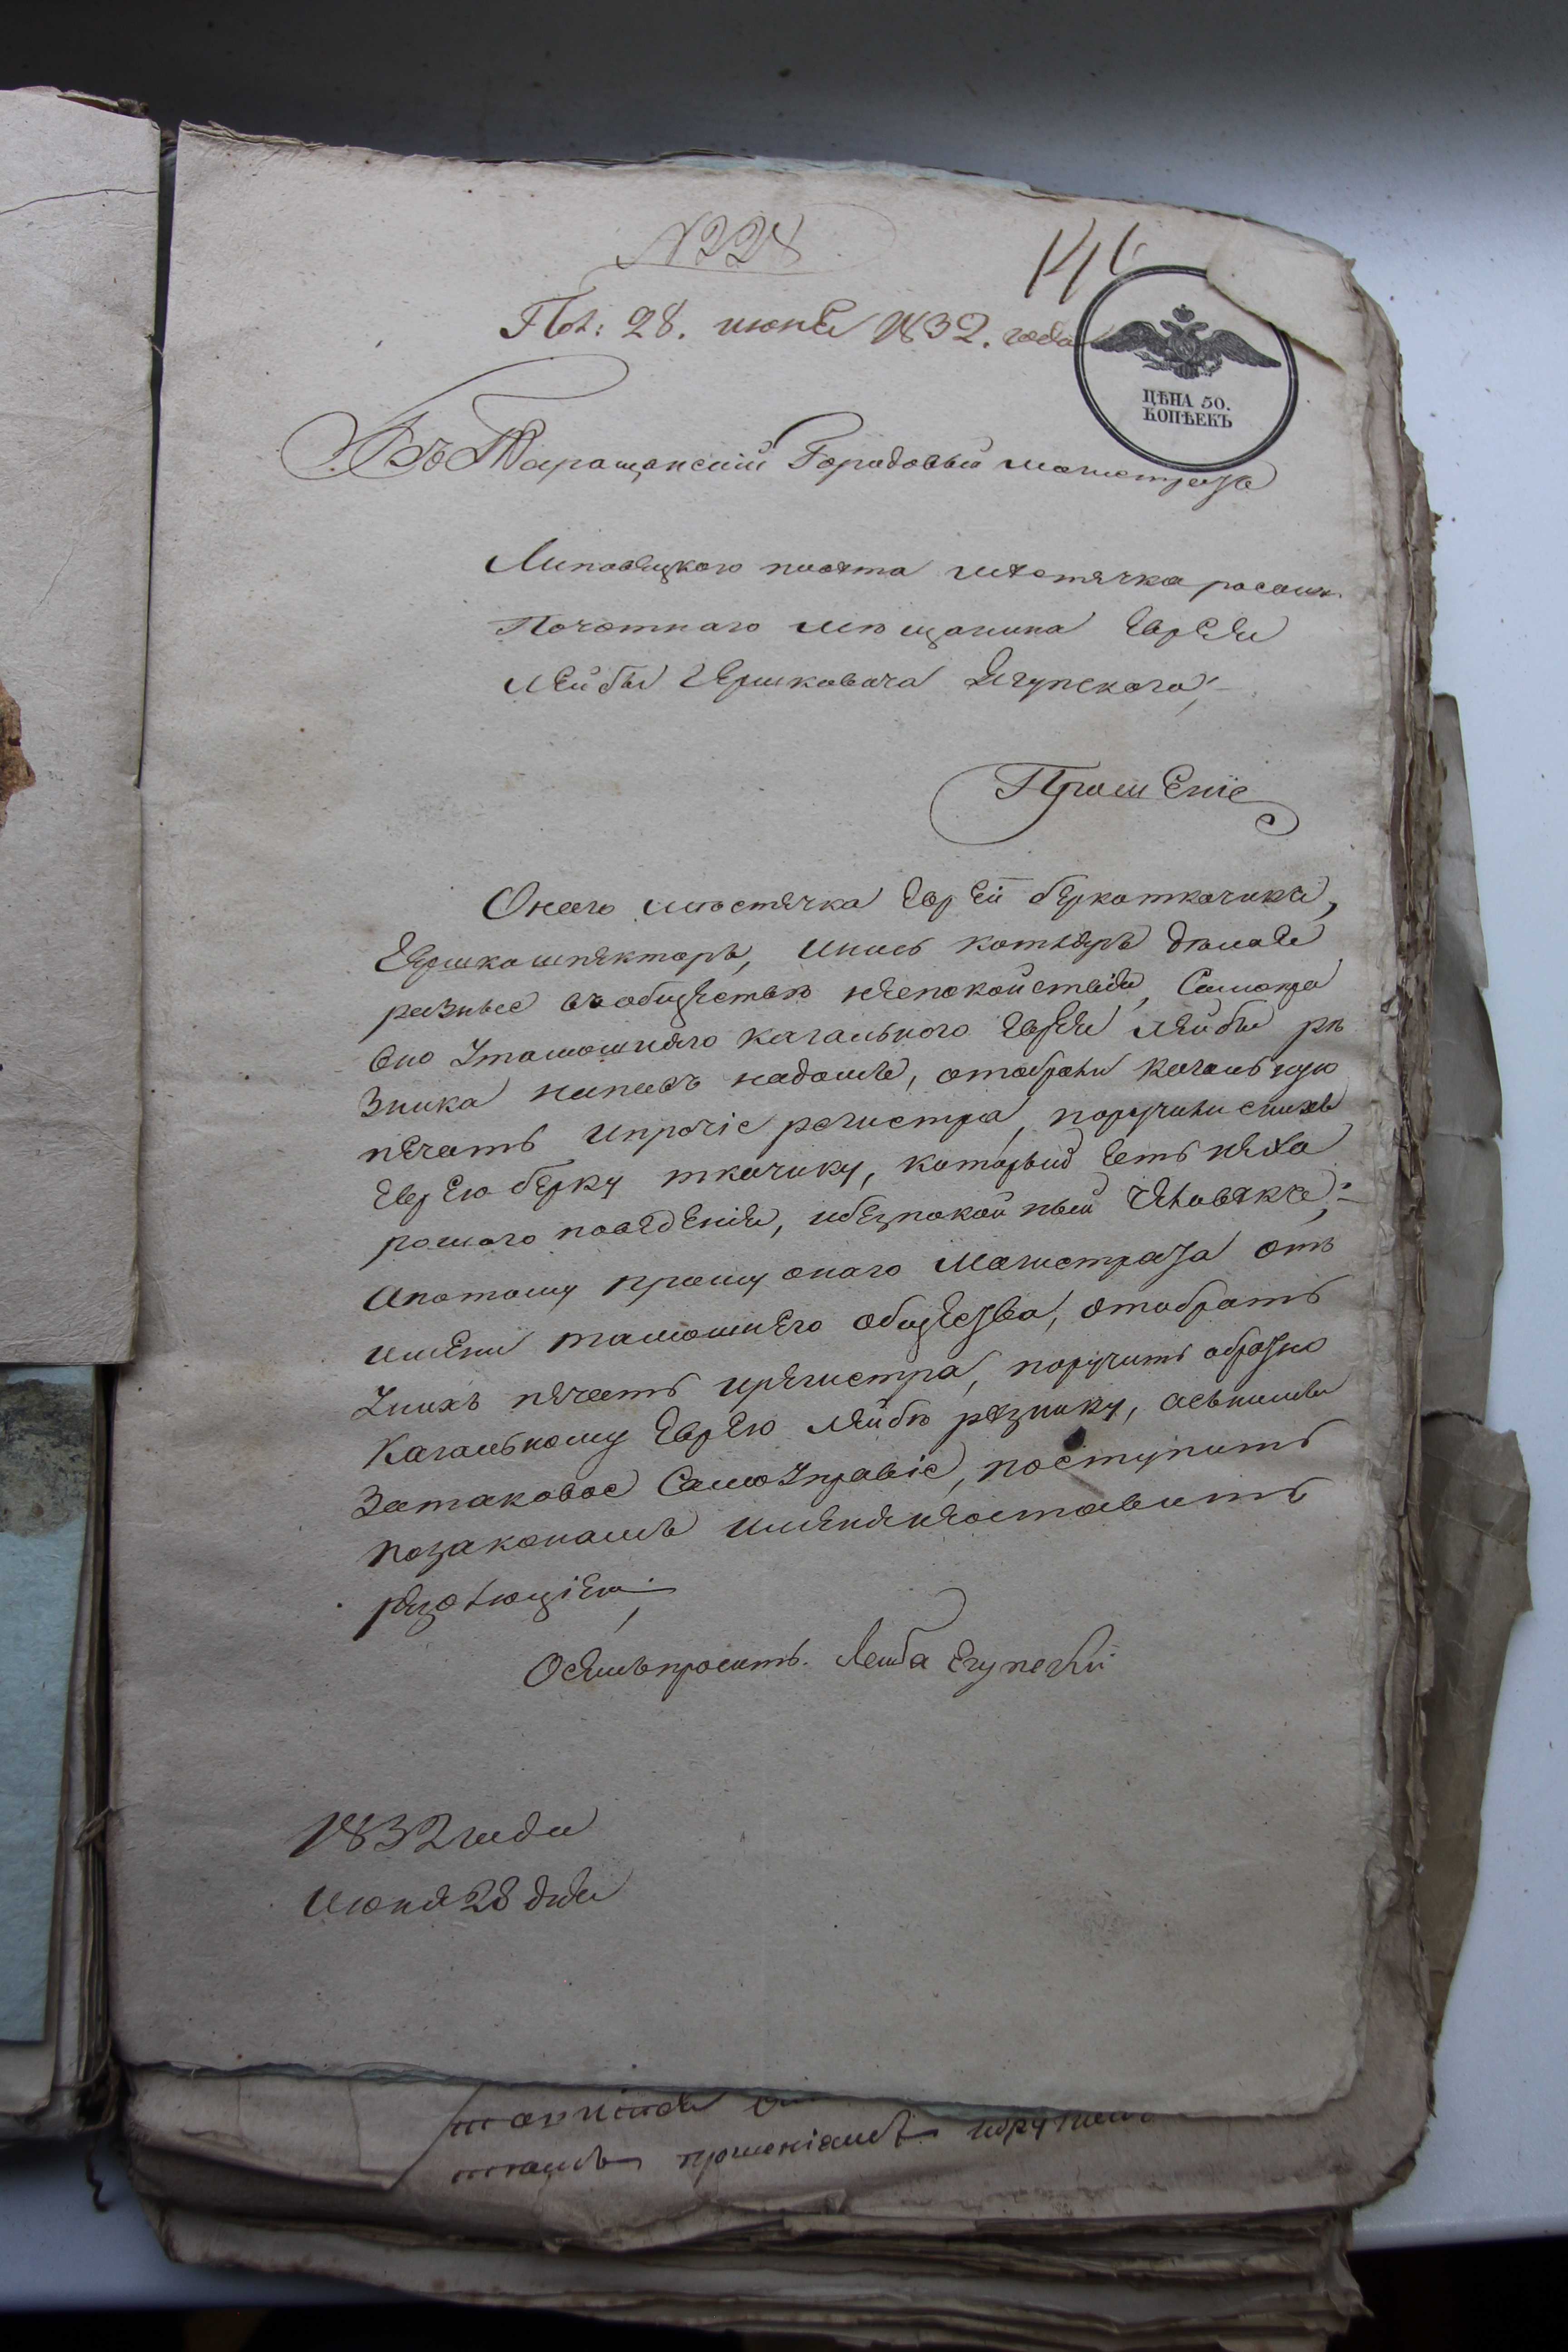 № 228
146
Пол: 28. июня 1832. года
ЦѢНА 50.
КОПѢЕКЪ
Въ Таращанский Городовый магистратъ
Липовецкого повята мѣстячка росош.
Почотнаго мѣщанина Еврея
Лейбы Гершковича Ягупского;
Прошеніе
Оного мѣстячка Еврей берко ткачикъ,
Гершко шпекторъ,
разные вообществѣ неспокойствія, Самоуправ
Узника напавъ надомъ, отобрали кагальную
печать ипрочіе регистра, поручили
Еврею берку ткачику, который есть неха
рошаго поведенія, ибезпокойный человякъ;
Апотому прошу оного Магистрата отъ
имени тамошнего общества, отобрать
Унихъ печать ирегистра, поручить обратно
Кагальному Еврею Лейбѣ резнику, асъними
Затаковое Самоуправіе, поступить
позаконамъ именянеоставить
резолюціею.
Осемъ просить. Лейба Егупский
1832 года
Июня 28 дня
тамъ прошеніямъ